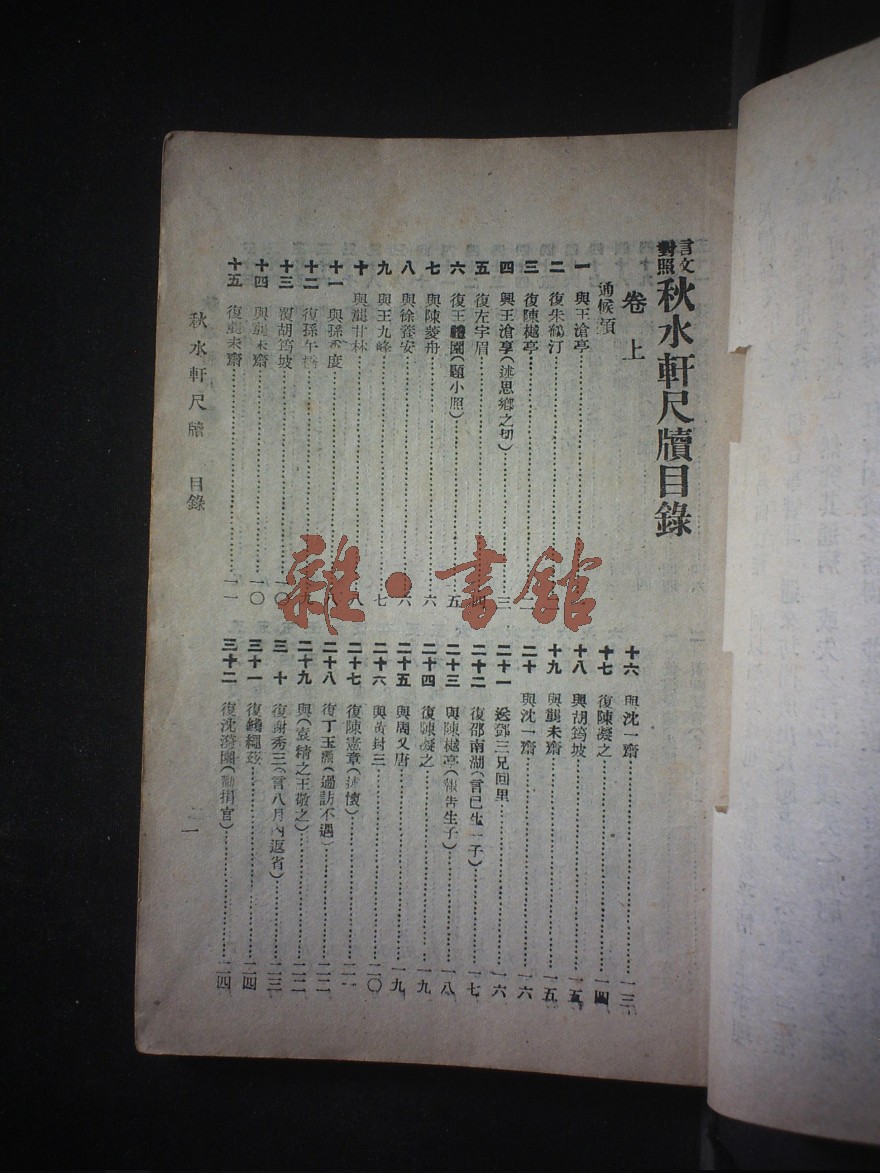 言文對照秋水軒尺牘目錄
卷上
通候類
一 與王滄亭
二 復朱鶴汀
三 復陳樾亭
四 與王滄享(述思鄉之切) 三
五 復左宇眉 四
六 復王體園(題小照) 五
七 與陳菱舟 六
八 與徐養安 六
九 與王九峰 七
十 與龔甘林 八
十一 與孫 度
十二 復孫午橋 九
十三 覆胡筠坡 一〇
十四 與龔未齋 一〇
十五 復龔未齋 一一
十六 與沈一齋 一三
十七 復陳凝之 一四
十八 與胡筠坡 一五
十九 與龔未齋 一五
二十 與沈一齋 一六
二十一 送鄧三兄回里 一六
二十二 復邵南湖(言已生一子) 一七
二十三 與陳樾亭(報告生子) 一八
二十四 復陳凝之 一九
二十五 與周又唐 一九
二十六 與黃封三 二〇
二十七 復陳憲章(述懷) 二一
二十八 復丁玉 (過訪不遇) 二二
二十九 與(袁精之王敬之) 二二
三十 復謝秀三(言八月內返省) 二三
三十一 復 繩茲 二四
三十二 復沈 園(勸捐官) 二四
秋水軒尺牘 目錄
一
雜·書館